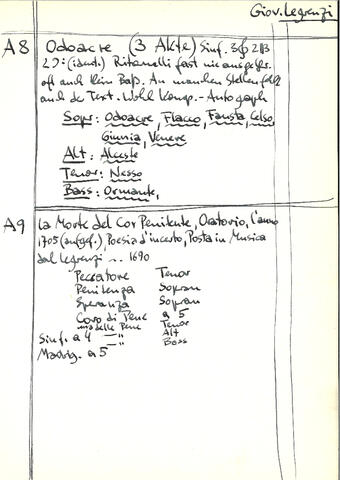 Giov. Legrenzi
A8 Odoacre (3 Akte) Sinf.
(ident.) Ritornelli fast nie ausgefer.
oft auch kein Baß. An manchen Stellen fehlt
auch de Text. Wohl Komp.-Autograph
Sopr: Odoacre, Flacco, Fausta, Celso,
Giunia, Venere
Alt: Alceste
Tenor: Nesso
Bass: Ormante,
A9 La Morte del Cor Penitente, Oratorio, l'anno
1705 (aufgef.), Poesia d'incerto, Posta in Musica
dal Legrenzi ... 1690
Peccatore Tenor
Penitenza Sopran
Speranza Sopran
Coro di Pene a 5
una delle Pene Tenor
Sinf. a 4 — " Alt
— " Bass
Madrig. a 5